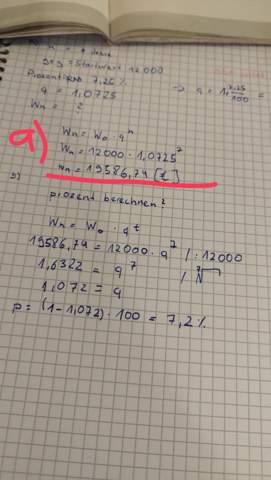 geg = Startwert 12000
Prozent 7,25 %
q = 1,0725 => q = 1+ 7,25/100 =
Wn = ?
a) Wn = W₀ · qⁿ
Wn = 12000 · 1,0725⁷
Wn = 19586,74 [€]
Prozent berechnen?
Wn = W₀ · qᵗ
19586,74 = 12000 · q⁷ / : 12000
1,6322 = q⁷ / ⁷√
1,072 = q
p = (1-1,072) · 100 = 7,2 %